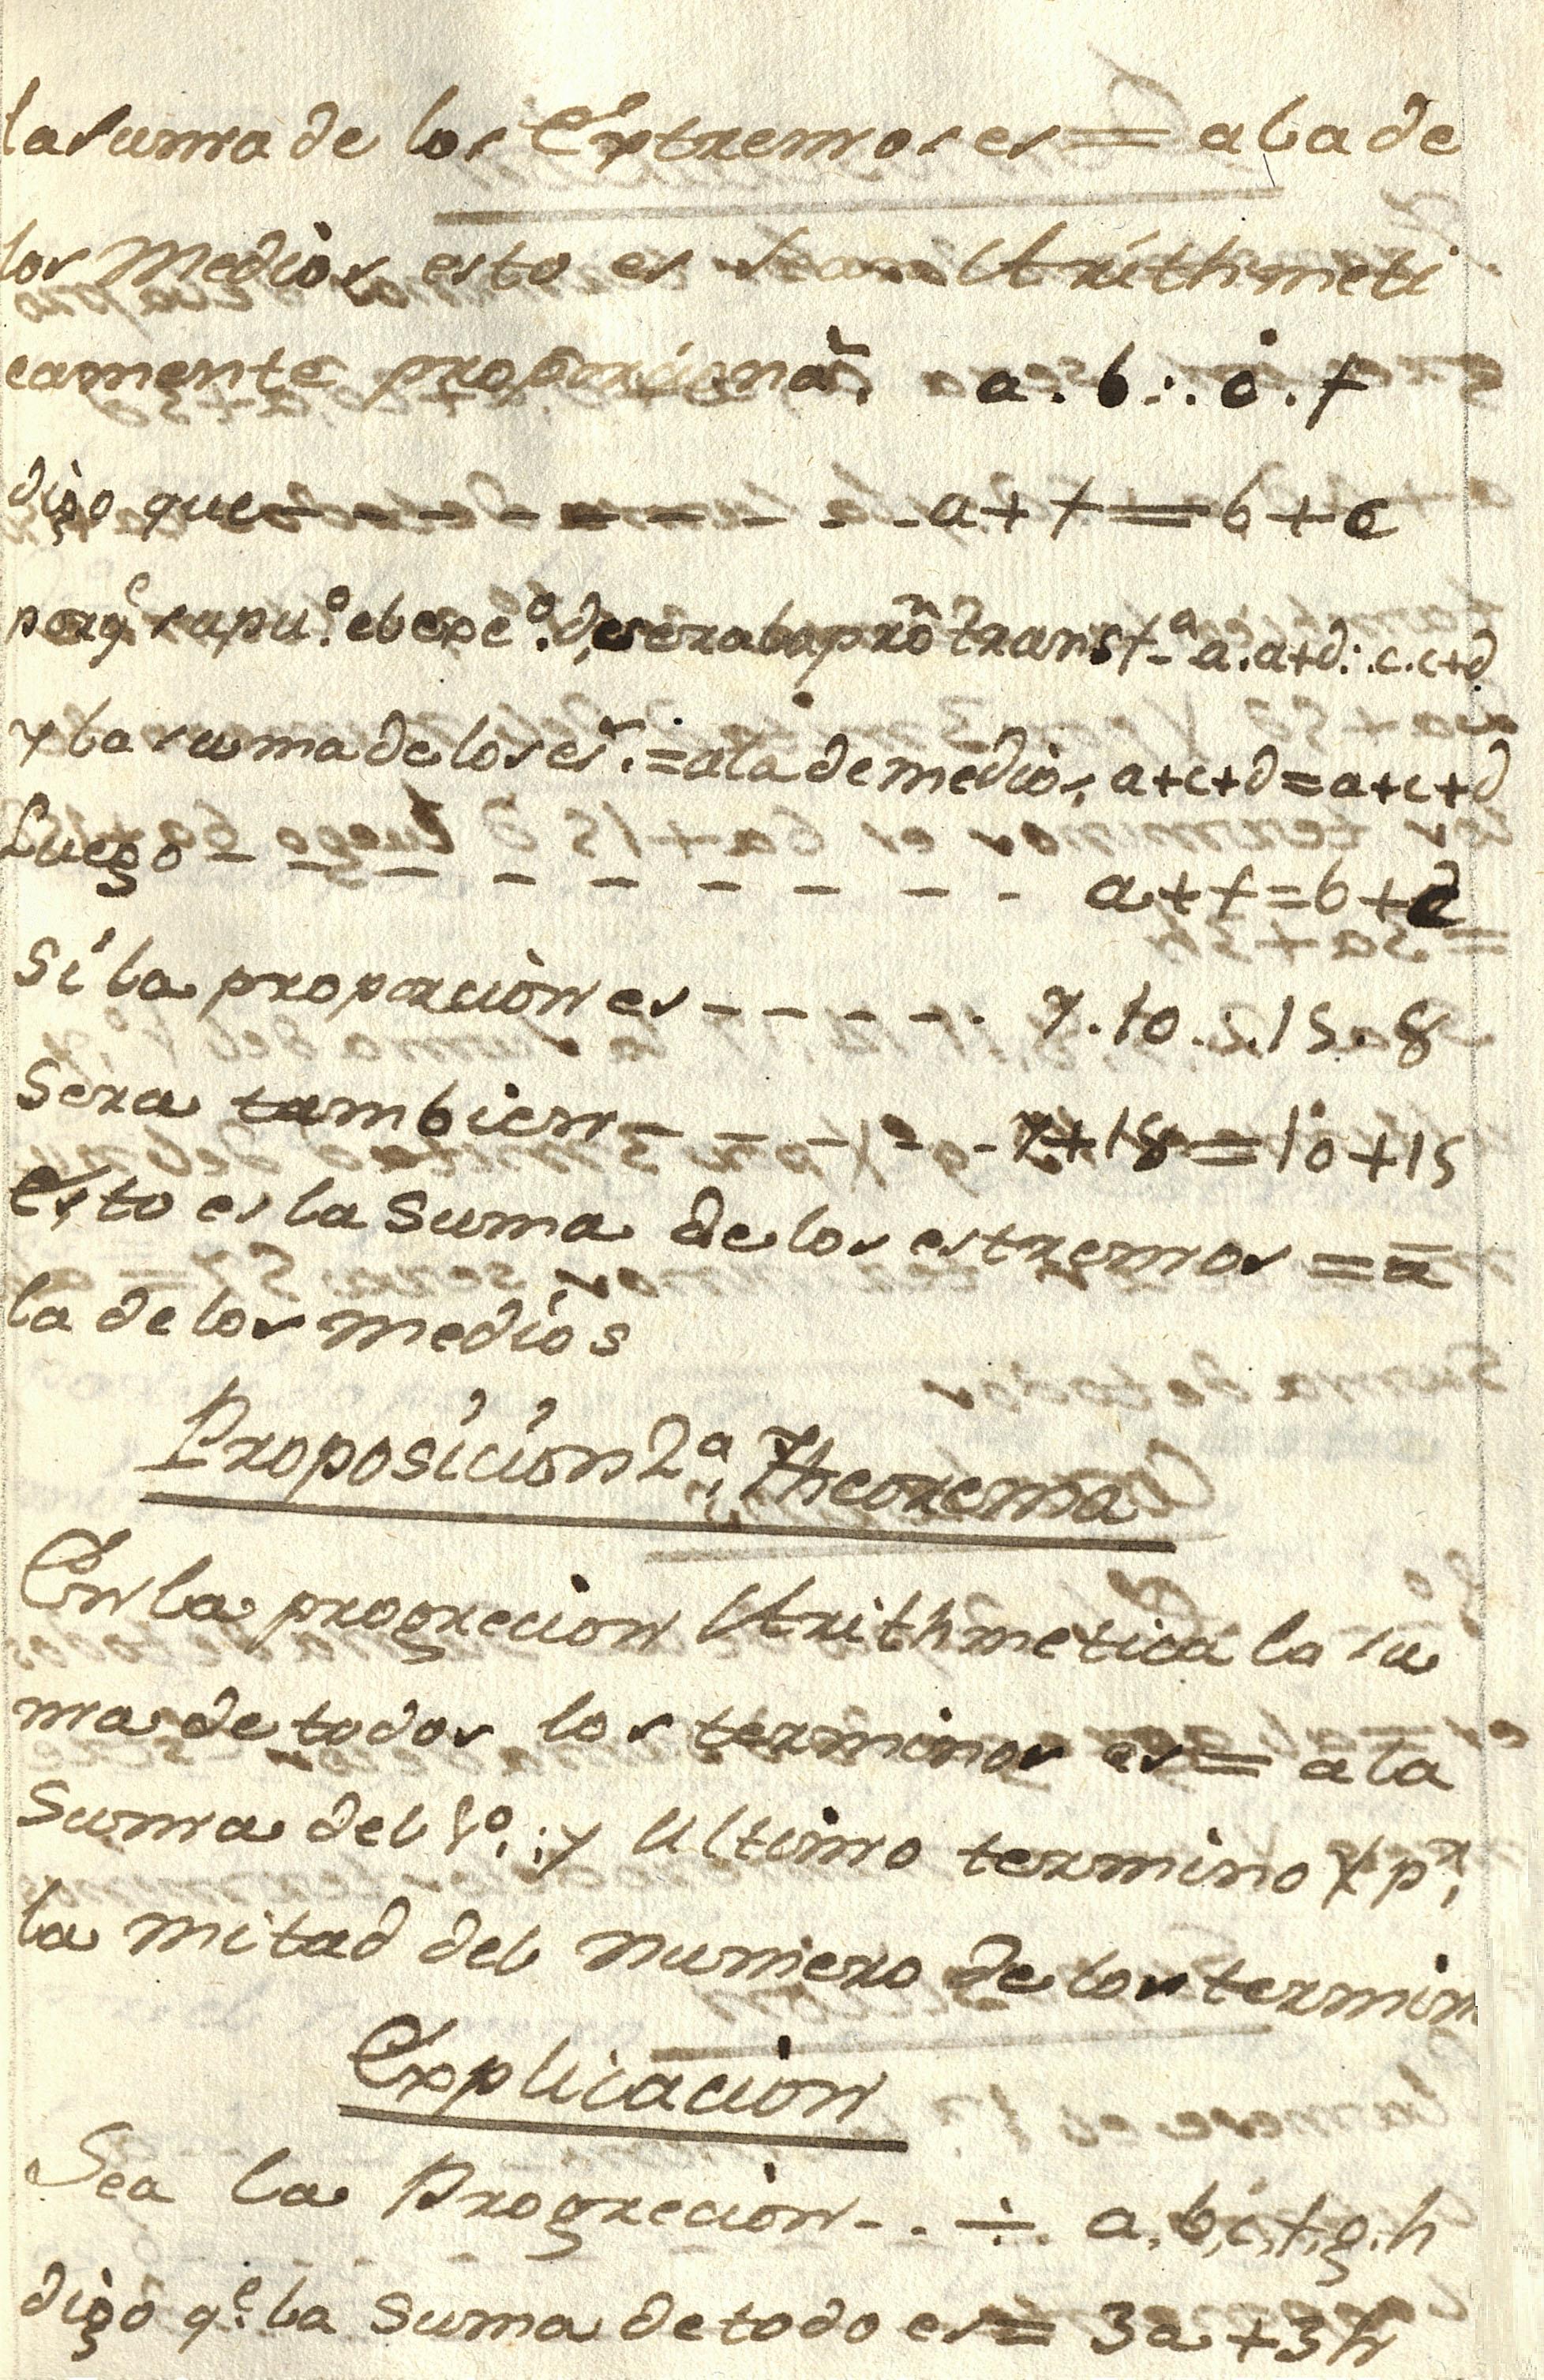 la suma de los Extremos es = a la de
los Medios esto es sean Arithmeti
camente proporciona.s a . b ∴ c . f
digo que - - - - - - - - - a + f = b + c
porq.e supu.o el exc.o d, sera la pro.n transf.a a . a+d ∴ c . c+d
y la suma de los es.r = a la de medios, a+c+d = a+c+d
Luego - - - - - - - - - a + f = b + c
Si la proporcion es - - - - - 7 . 10 ∴ 15 . 8
Sera tambien - - - - - 7 + 18 = 10 + 15
esto es la suma de los estremos = a
la de los medios
Proposicion 2.a Theorema
En la progrecion Arithmetica la su
ma de todos los terminos es = a la
Suma del 1.o y Ultimo termino X p.r
la mitad del numero de los termin
Explicacion
Sea la Progrecion - . ÷ a, b, c, f, g, h
digo q.e la suma de todo es = 3a + 3h